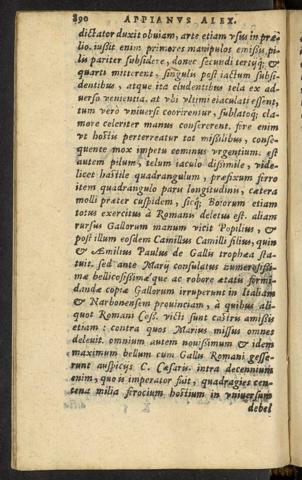 890 APPIANVS ALEX.
dictator duxit obuiam, arte etiam vsus in præ-
lio. iussit enim primores manipulos emissis pi-
lis pariter subsidere, donec secundi tertijq; &
quarti mitterent, singulis post iactum subsi-
dentibus, atque ita eludentibus tela ex ad-
uerso venientia. at vbi vltimi eiaculati essent,
tum verò vniuersi coorirentur, sublatoq; cla-
more celeriter manus consererent. fore enim
vt hostis perterreatur tot missilibus, conse-
quente mox impetu cominus vrgentium. est
autem pilum, telum iaculo dissimile, vide-
licet hastile quadrangulum, præfixum ferro
item quadrangulo paris longitudinis, cætera
molli præter cuspidem, sicq; Boiorum etiam
totus exercitus à Romanis deletus est. aliam
rursus Gallorum manum vicit Popilius, &
post illum eosdem Camillus Camilli filius, quin
& Æmilius Paulus de Gallis trophæa sta-
tuit. sed ante Marij consulatus numerosissi-
mæ bellicosissimæque ac robore ætatis formi-
dandæ copiæ Gallorum irruperunt in Italiam
& Narbonensem prouinciam, à quibus ali-
quot Romani Coss. victi sunt castris amissis
etiam: contra quos Marius missus omnes
deleuit. omnium autem nouissimum & idem
maximum bellum cum Gallis Romani gesse-
runt auspicijs C. Cæsaris. intra decennium
enim, quo is imperator fuit, quadragies cen-
tena milia ferocium hostium in vniuersum
debel